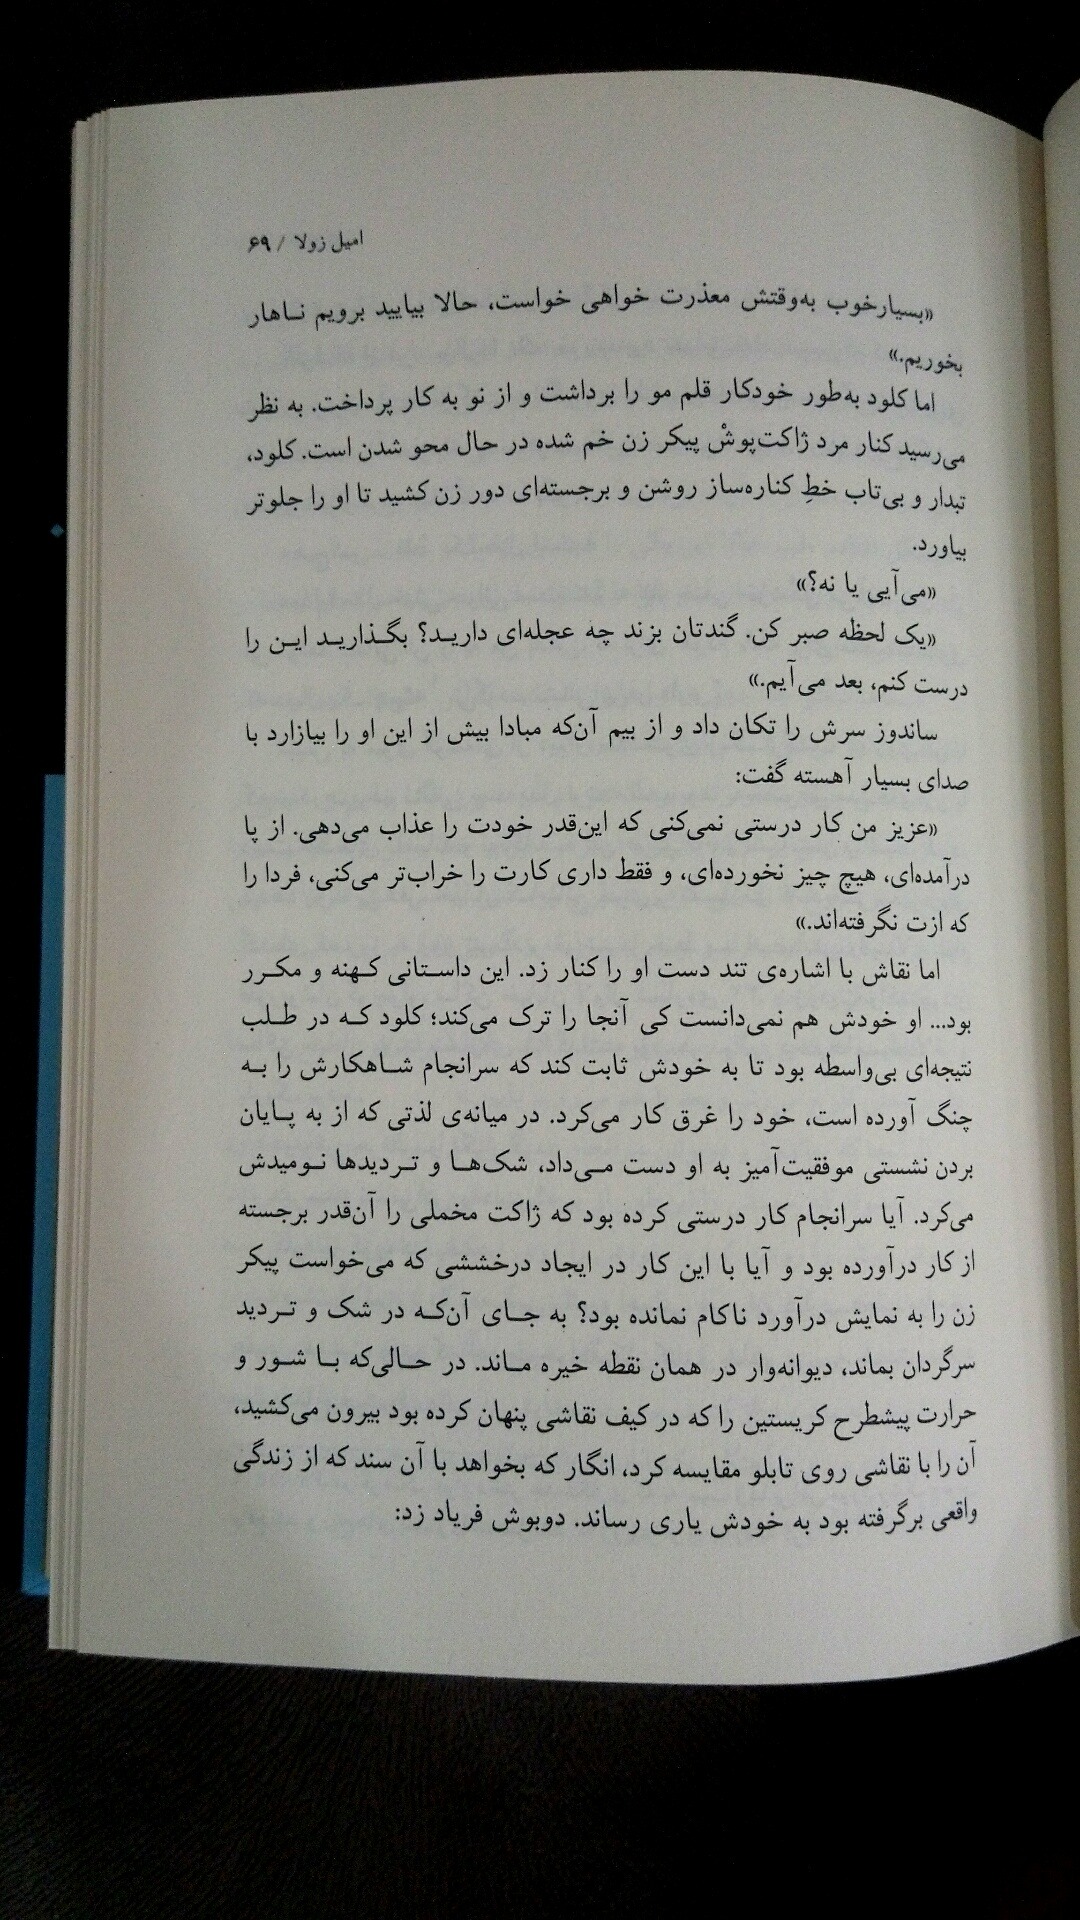 امیل زولا / ۶۹
«بسیارخوب به‌وقتش معذرت خواهی خواست، حالا بیایید برویم ناهار
بخوریم.»
اما کلود به‌طور خودکار قلم مو را برداشت و از نو به کار پرداخت. به نظر
می‌رسید کنار مرد ژاکت‌پوشْ پیکر زن خم شده در حال محو شدن است. کلود،
تبدار و بی‌تاب خطِ کناره‌ساز روشن و برجسته‌ای دور زن کشید تا او را جلوتر
بیاورد.
«می‌آیی یا نه؟»
«یک لحظه صبر کن. گندتان بزند چه عجله‌ای دارید؟ بگذارید این را
درست کنم، بعد می‌آیم.»
ساندوز سرش را تکان داد و از بیم آن‌که مبادا بیش از این او را بیازارد با
صدای بسیار آهسته گفت:
«عزیز من کار درستی نمی‌کنی که این‌قدر خودت را عذاب می‌دهی. از پا
درآمده‌ای، هیچ چیز نخورده‌ای، و فقط داری کارت را خراب‌تر می‌کنی، فردا را
که ازت نگرفته‌اند.»
اما نقاش با اشاره‌ی تند دست او را کنار زد. این داستانی کهنه و مکرر
بود... او خودش هم نمی‌دانست کی آنجا را ترک می‌کند؛ کلود که در طلب
نتیجه‌ای بی‌واسطه بود تا به خودش ثابت کند که سرانجام شاهکارش را به
چنگ آورده است، خود را غرق کار می‌کرد. در میانه‌ی لذتی که از به پایان
بردن نشستی موفقیت‌آمیز به او دست می‌داد، شک‌ها و تردیدها نومیدش
می‌کرد. آیا سرانجام کار درستی کرده بود که ژاکت مخملی را آن‌قدر برجسته
از کار درآورده بود و آیا با این کار در ایجاد درخششی که می‌خواست پیکر
زن را به نمایش درآورد ناکام نمانده بود؟ به جای آن‌که در شک و تردید
سرگردان بماند، دیوانه‌وار در همان نقطه خیره ماند. در حالی‌که با شور و
حرارت پیشطرح کریستین را که در کیف نقاشی پنهان کرده بود بیرون می‌کشید،
آن را با نقاشی روی تابلو مقایسه کرد، انگار که بخواهد با آن سند که از زندگی
واقعی برگرفته بود به خودش یاری رساند. دوبوش فریاد زد: